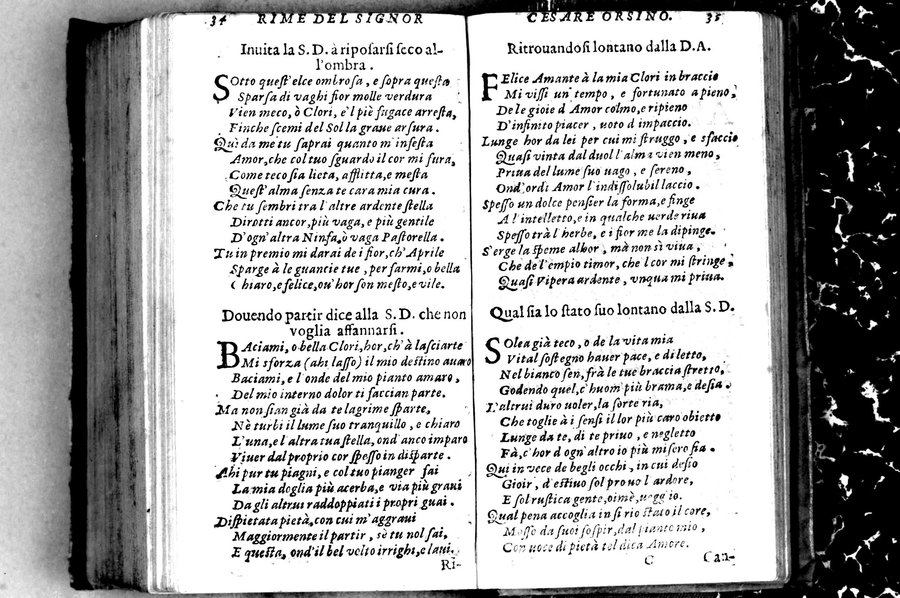 34 RIME DEL SIGNOR
Inuita la S. D. à riposarsi seco al-
l'ombra.
SOtto quest'elce ombrosa, e sopra questa
Sparsa di vaghi fior molle verdura
Vien meco, ò Clori, e'l piè fugace arresta,
Finche scemi del Sol la graue arsura.
Quì da me tu saprai quanto m'infesta
Amor, che col tuo sguardo il cor mi fura,
Come teco sia lieta, afflitta, e mesta
Quest'alma senza te cara mia cura.
Che tu sembri tra l'altre ardente stella
Dirotti ancor, più vaga, e più gentile
D'ogn'altra Ninfa, ò vaga Pastorella.
Tu in premio mi darai de i fior, ch'Aprile
Sparge à le guancie tue, per farmi, o bella
Chiaro, e felice, ou'hor son mesto, e vile.
Douendo partir dice alla S. D. che non
voglia affannarsi.
BAciami, o bella Clori, hor, ch'à lasciarte
Mi sforza (ahi lasso) il mio destino auaro
Baciami, e l'onde del mio pianto amaro,
Del mio interno dolor ti faccian parte.
Ma non sian già da te lagrime sparte,
Nè turbi il lume suo tranquillo, e chiaro
L'una, e l'altra tua stella, ond'anco imparo
Viuer dal proprio cor spesso in disparte.
Ahi pur tu piagni, e col tuo pianger fai
La mia doglia più acerba, e via più graui
Da gli altrui raddoppiati i propri guai.
Dispietata pietà, con cui m'aggraui
Maggiormente il partir, se tu nol sai,
E questa, ond'il bel volto irrighi, e laui.
Ri-
CESARE ORSINO. 35
Ritrouandosi lontano dalla D. A.
FElice Amante à la mia Clori in braccio
Mi vissi un tempo, e fortunato a pieno,
De le gioie d'Amor colmo, e ripieno
D'infinito piacer, uoto d'impaccio.
Lunge hor da lei per cui mi struggo, e sfaccio
Quasi vinta dal duol l'alma vien meno,
Priua del lume suo uago, e sereno,
Ond'ordì Amor l'indissolubil laccio.
Spesso un dolce pensier la forma, e finge
A l'intelletto, e in qualche uerde riua
Spesso trà l'herbe, e i fior me la dipinge.
S'erge la speme alhor, mà non sì viua,
Che de l'empio timor, che l cor mi stringe,
Quasi Vipera ardente, vnqua mi priua.
Qual sia lo stato suo lontano dalla S. D.
SOlea già teco, o de la vita mia
Vital sostegno hauer pace, e diletto,
Nel bianco sen, frà le tue braccia stretto,
Godendo quel, c'huom più brama, e desia.
L'altrui duro uoler, la sorte ria,
Che toglie à i sensi il lor più caro obietto
Lunge da te, di te priuo, e negletto
Fà, c'hor d ogn'altro io più misero sia.
Quì in vece de begli occhi, in cui desio
Gioir, d'estiuo sol prouo l'ardore,
E sol rustica gente, oimè, uegg'io.
Qual pena accoglia in sì rio stato il core,
Mosso da suoi sospir, dal pianto mio,
Con uoce di pietà tel dica Amore.
C Can-